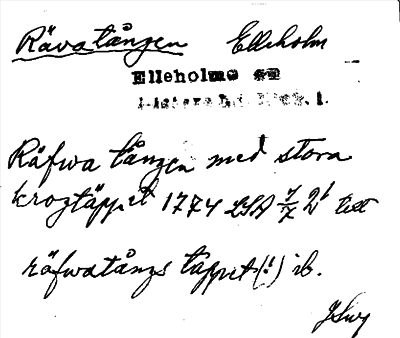 Rävatången Elleholm
Elleholms sn
Räfwa tången med stora
krogtäppet 1774 LSA 2' text
räfwatångs täppet (!) ib.